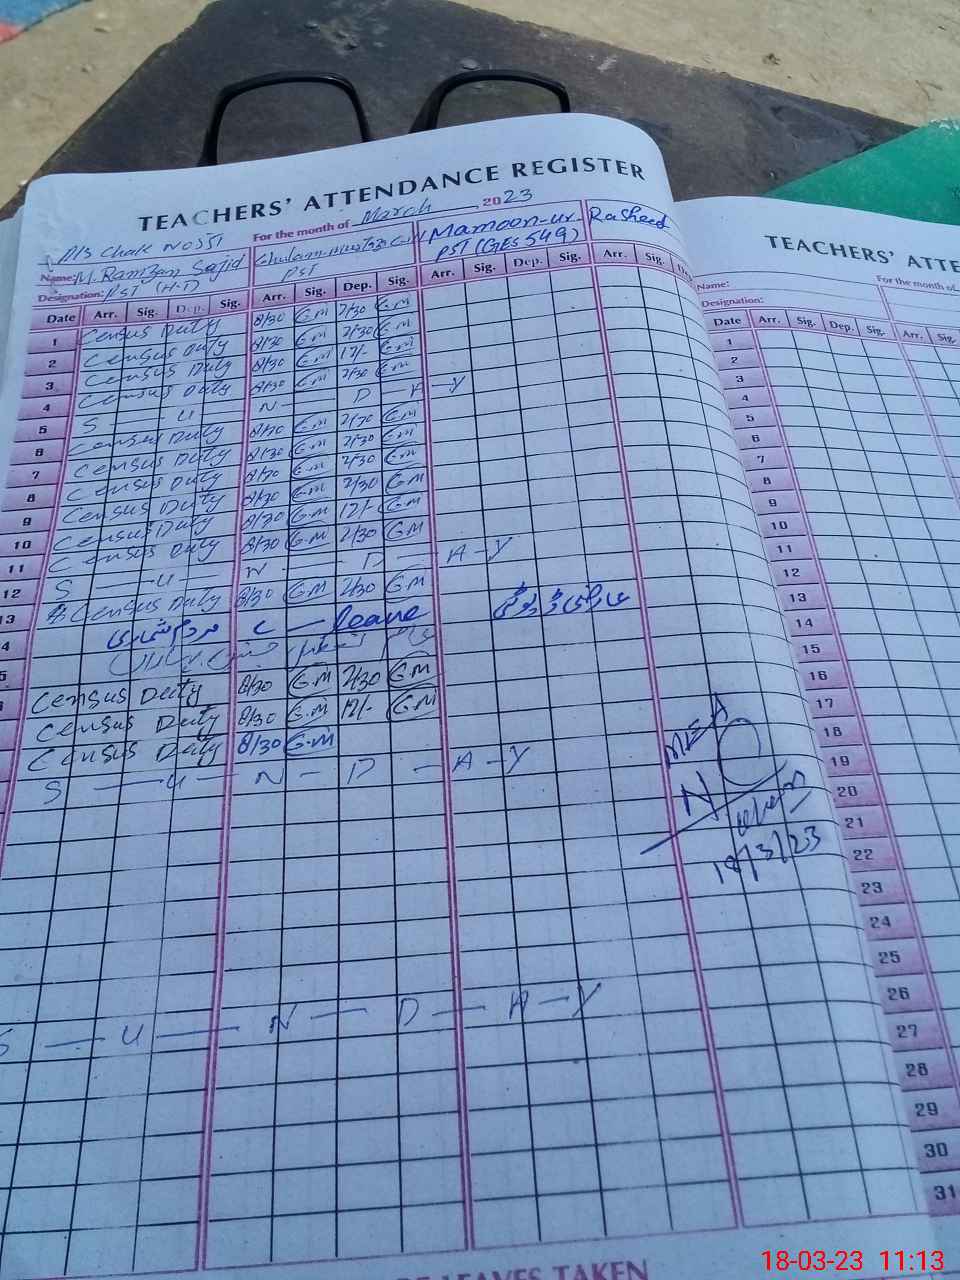 TEACHERS' ATTENDANCE REGISTER
For the month of March 2023
P/S Chak No 551
Name: M. Ramzan Sajid
Designation: PST (H.T)
PST
Mamoon-ur-Rasheed
PST (GES 549)
Date Arr. Sig. Dep. Sig. Arr. Sig. Dep. Sig. Arr. Sig. Dep. Sig. Arr. Sig.
1 Census Duty 8/30 G.M 2/30 G.M
2 Census Duty 8/30 G.M 2/30 G.M
3 Census Duty 8/30 G.M 12/- G.M
4 Census Duty 8/30 G.M 2/30 G.M
5 S — U — N — D — A — Y
6 Census Duty 8/30 G.M 2/30 G.M
7 Census Duty 8/30 G.M 2/30 G.M
8 Census Duty 8/30 G.M 2/30 G.M
9 Census Duty 8/30 G.M 2/30 G.M
10 Census Duty 8/30 G.M 12/- G.M
11 Census Duty 8/30 G.M 2/30 G.M
12 S — U — N — D — A — Y
13 Census Duty 8/30 G.M 2/30 G.M
مردم شماری C — leave عارضی ڈیوٹی
Census Duty 8/30 G.M 2/30 G.M
Census Duty 8/30 G.M 12/- G.M
Census Duty 8/30 G.M
S — U — N — D — A — Y
MEA
18/3/23
S — U — N — D — A — Y
LEAVES TAKEN
TEACHERS' ATTE
Name: For the month of
Designation:
Date Arr. Sig. Dep. Sig. Arr. Sig.
1
2
3
4
5
6
7
8
9
10
11
12
13
14
15
16
17
18
19
20
21
22
23
24
25
26
27
28
29
30
31
18-03-23 11:13